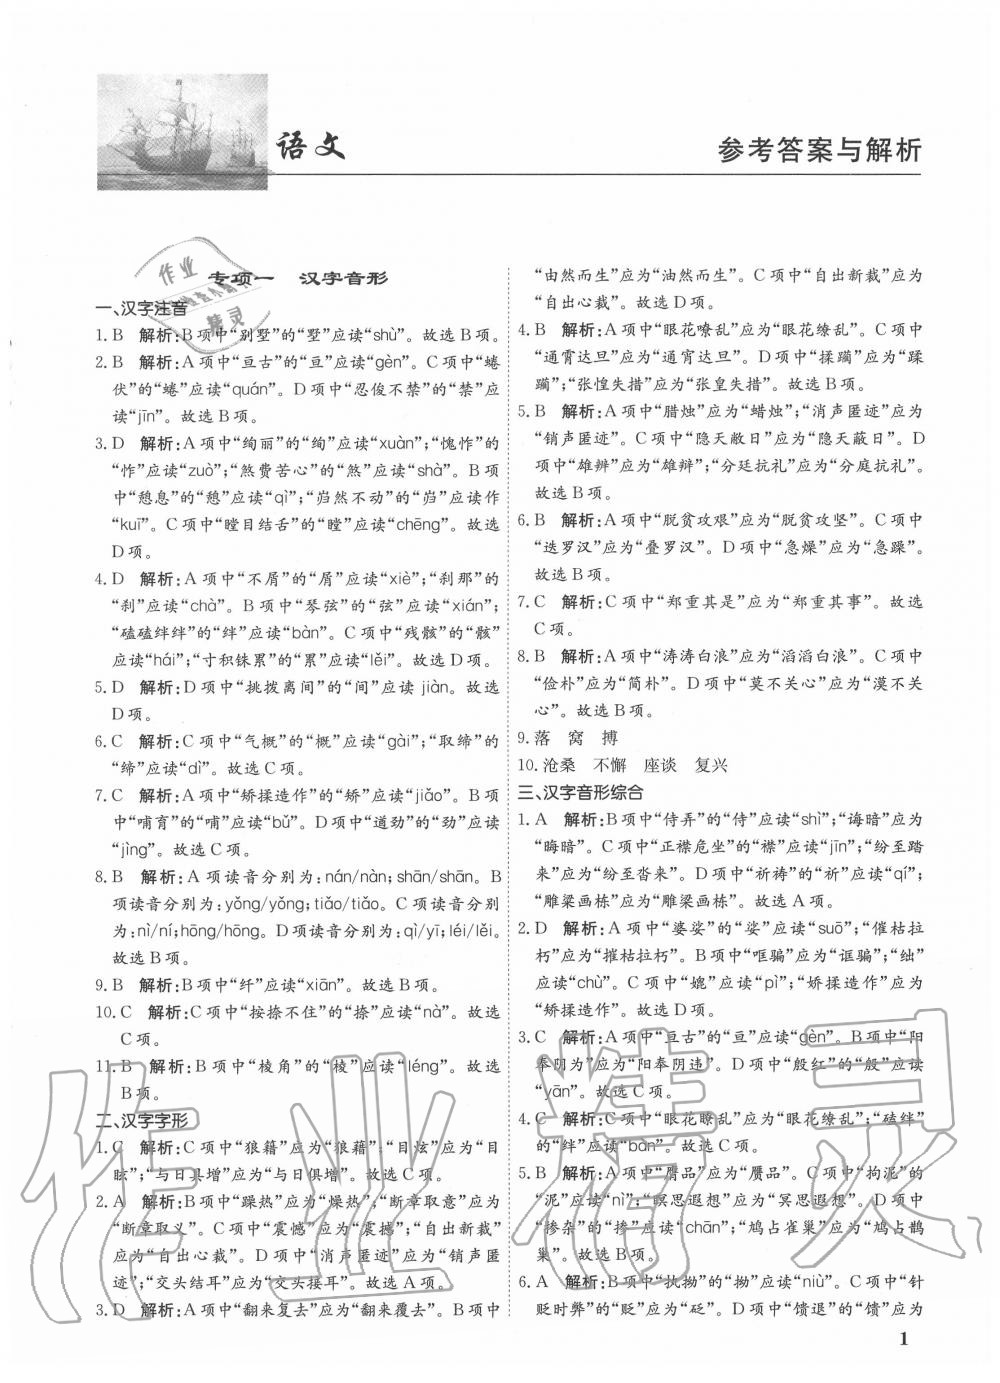 语文
参考答案与解析
专项一 汉字音形
一、汉字注音
1. B 解析:B项中“别墅”的“墅”应读“shù”。故选B项。
2. B 解析:A项中“亘古”的“亘”应读“gèn”。C项中“蜷
伏”的“蜷”应读“quán”。D项中“忍俊不禁”的“禁”应
读“jīn”。故选B项。
3. D 解析:A项中“绚丽”的“绚”应读“xuàn”;“愧怍”的
“怍”应读“zuò”;“煞费苦心”的“煞”应读“shà”。B项
中“憩息”的“憩”应读“qì”;“岿然不动”的“岿”应读作
“kuī”。C项中“瞠目结舌”的“瞠”应读“chēng”。故选
D项。
4. D 解析:A项中“不屑”的“屑”应读“xiè”;“刹那”的
“刹”应读“chà”。B项中“琴弦”的“弦”应读“xián”;
“磕磕绊绊”的“绊”应读“bàn”。C项中“残骸”的“骸”
应读“hái”;“寸积铢累”的“累”应读“lěi”。故选D项。
5. D 解析:D项中“挑拨离间”的“间”应读 jiàn。故选
D项。
6. C 解析:C项中“气概”的“概”应读“gài”;“取缔”的
“缔”应读“dì”。故选C项。
7. C 解析:A项中“矫揉造作”的“矫”应读“jiǎo”。B项
中“哺育”的“哺”应读“bǔ”。D项中“遒劲”的“劲”应读
“jìng”。故选C项。
8. B 解析:A项读音分别为:nán/nàn;shān/shān。B
项读音分别为:yǒng/yǒng;tiáo/tiáo。C项读音分别
为:nì/ní;hōng/hōng。D项读音分别为:qì/yī;léi/lěi。
故选B项。
9. B 解析:B项中“纤”应读“xiān”。故选B项。
10. C 解析:C项中“按捺不住”的“捺”应读“nà”。故选
C项。
11. B 解析:B项中“棱角”的“棱”应读“léng”。故选
B项。
二、汉字字形
1. C 解析:C项中“狼籍”应为“狼藉”;“目炫”应为“目
眩”;“与日具增”应为“与日俱增”。故选C项。
2. A 解析:B项中“躁热”应为“燥热”;“断章取意”应为
“断章取义”。C项中“震憾”应为“震撼”;“自出新裁”
应为“自出心裁”。D项中“消声匿迹”应为“销声匿
迹”;“交头结耳”应为“交头接耳”。故选A项。
3. D 解析:A项中“翻来复去”应为“翻来覆去”。B项中
“由然而生”应为“油然而生”。C项中“自出新裁”应为
“自出心裁”。故选D项。
4. B 解析:A项中“眼花嘹乱”应为“眼花缭乱”。C项中
“通霄达旦”应为“通宵达旦”。D项中“揉躏”应为“蹂
躏”;“张惶失措”应为“张皇失措”。故选B项。
5. B 解析:A项中“腊烛”应为“蜡烛”;“消声匿迹”应为
“销声匿迹”。C项中“隐天敝日”应为“隐天蔽日”。D
项中“雄辨”应为“雄辩”;“分廷抗礼”应为“分庭抗礼”。
故选B项。
6. B 解析:A项中“脱贫攻艰”应为“脱贫攻坚”。C项中
“迭罗汉”应为“叠罗汉”。D项中“急燥”应为“急躁”。
故选B项。
7. C 解析:C项中“郑重其是”应为“郑重其事”。故选
C项。
8. B 解析:A项中“涛涛白浪”应为“滔滔白浪”。C项中
“俭朴”应为“简朴”。D项中“莫不关心”应为“漠不关
心”。故选B项。
9. 落 窝 搏
10. 沧桑 不懈 座谈 复兴
三、汉字音形综合
1. A 解析:B项中“侍弄”的“侍”应读“shì”;“诲暗”应为
“晦暗”。C项中“正襟危坐”的“襟”应读“jīn”;“纷至踏
来”应为“纷至沓来”。D项中“祈祷”的“祈”应读“qí”;
“雕梁画栋”应为“雕梁画栋”。故选A项。
2. D 解析:A项中“婆娑”的“娑”应读“suō”;“催枯拉
朽”应为“摧枯拉朽”。B项中“哐骗”应为“诓骗”;“绌”
应读“chù”。C项中“媲”应读“pì”;“娇揉造作”应为
“矫揉造作”。故选D项。
3. C 解析:A项中“亘古”的“亘”应读“gèn”。B项中“阳
奉阴为”应为“阳奉阴违”。D项中“殷红”的“殷”应读
“yān”。故选C项。
4. C 解析:B项中“眼花瞭乱”应为“眼花缭乱”;“磕绊”
的“绊”应读“bàn”。故选C项。
5. B 解析:A项中“膺品”应为“赝品”。C项中“拘泥”的
“泥”应读“nì”;“暝思遐想”应为“冥思遐想”。D项中
“掺杂”的“掺”应读“chān”;“鸠占雀巢”应为“鸠占鹊
巢”。故选B项。
6. A 解析:B项中“执拗”的“拗”应读“niù”。C项中“针
贬时弊”的“贬”应为“砭”。D项中“馈退”的“馈”应为
1
作业精灵